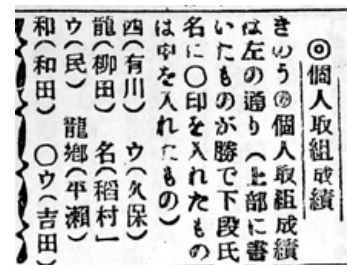 ◎個人取組成績
きのう の個人取組成績
は左の通り(上部に書
いたものが勝で下段氏
名に〇印を入れたもの
は申を入れたもの)
四(有川) ウ(久保)
龍(柳田) 名(稻村一
ウ(民) 龍郷(平瀬)
和(和田) 〇ウ(吉田)